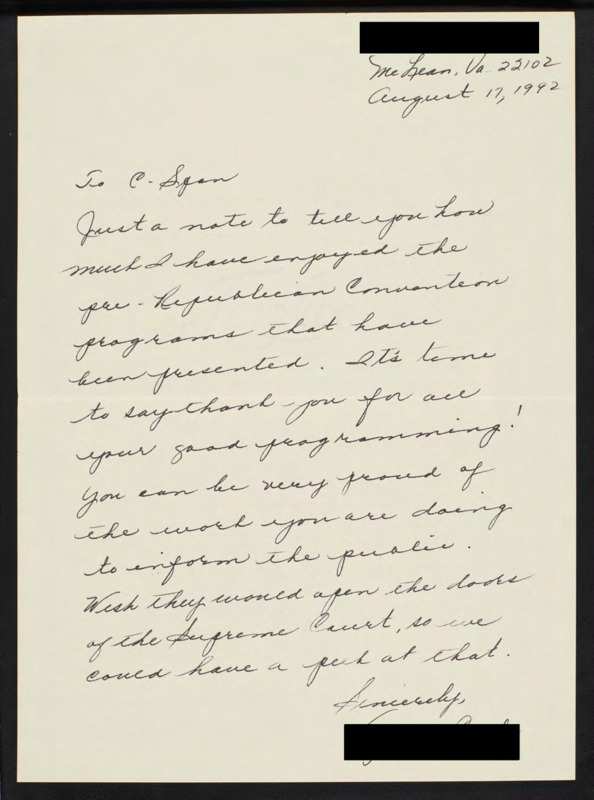 McLean, Va. 22102
August 17, 1992
To C-Span
Just a note to tell you how
much I have enjoyed the
pre-Republican Convention
programs that have
been presented. It's time
to say thank-you for all
your good programming!
You can be very proud of
the work you are doing
to inform the public.
Wish they would open the doors
of the Supreme Court, so we
could have a peek at that.
Sincerely,